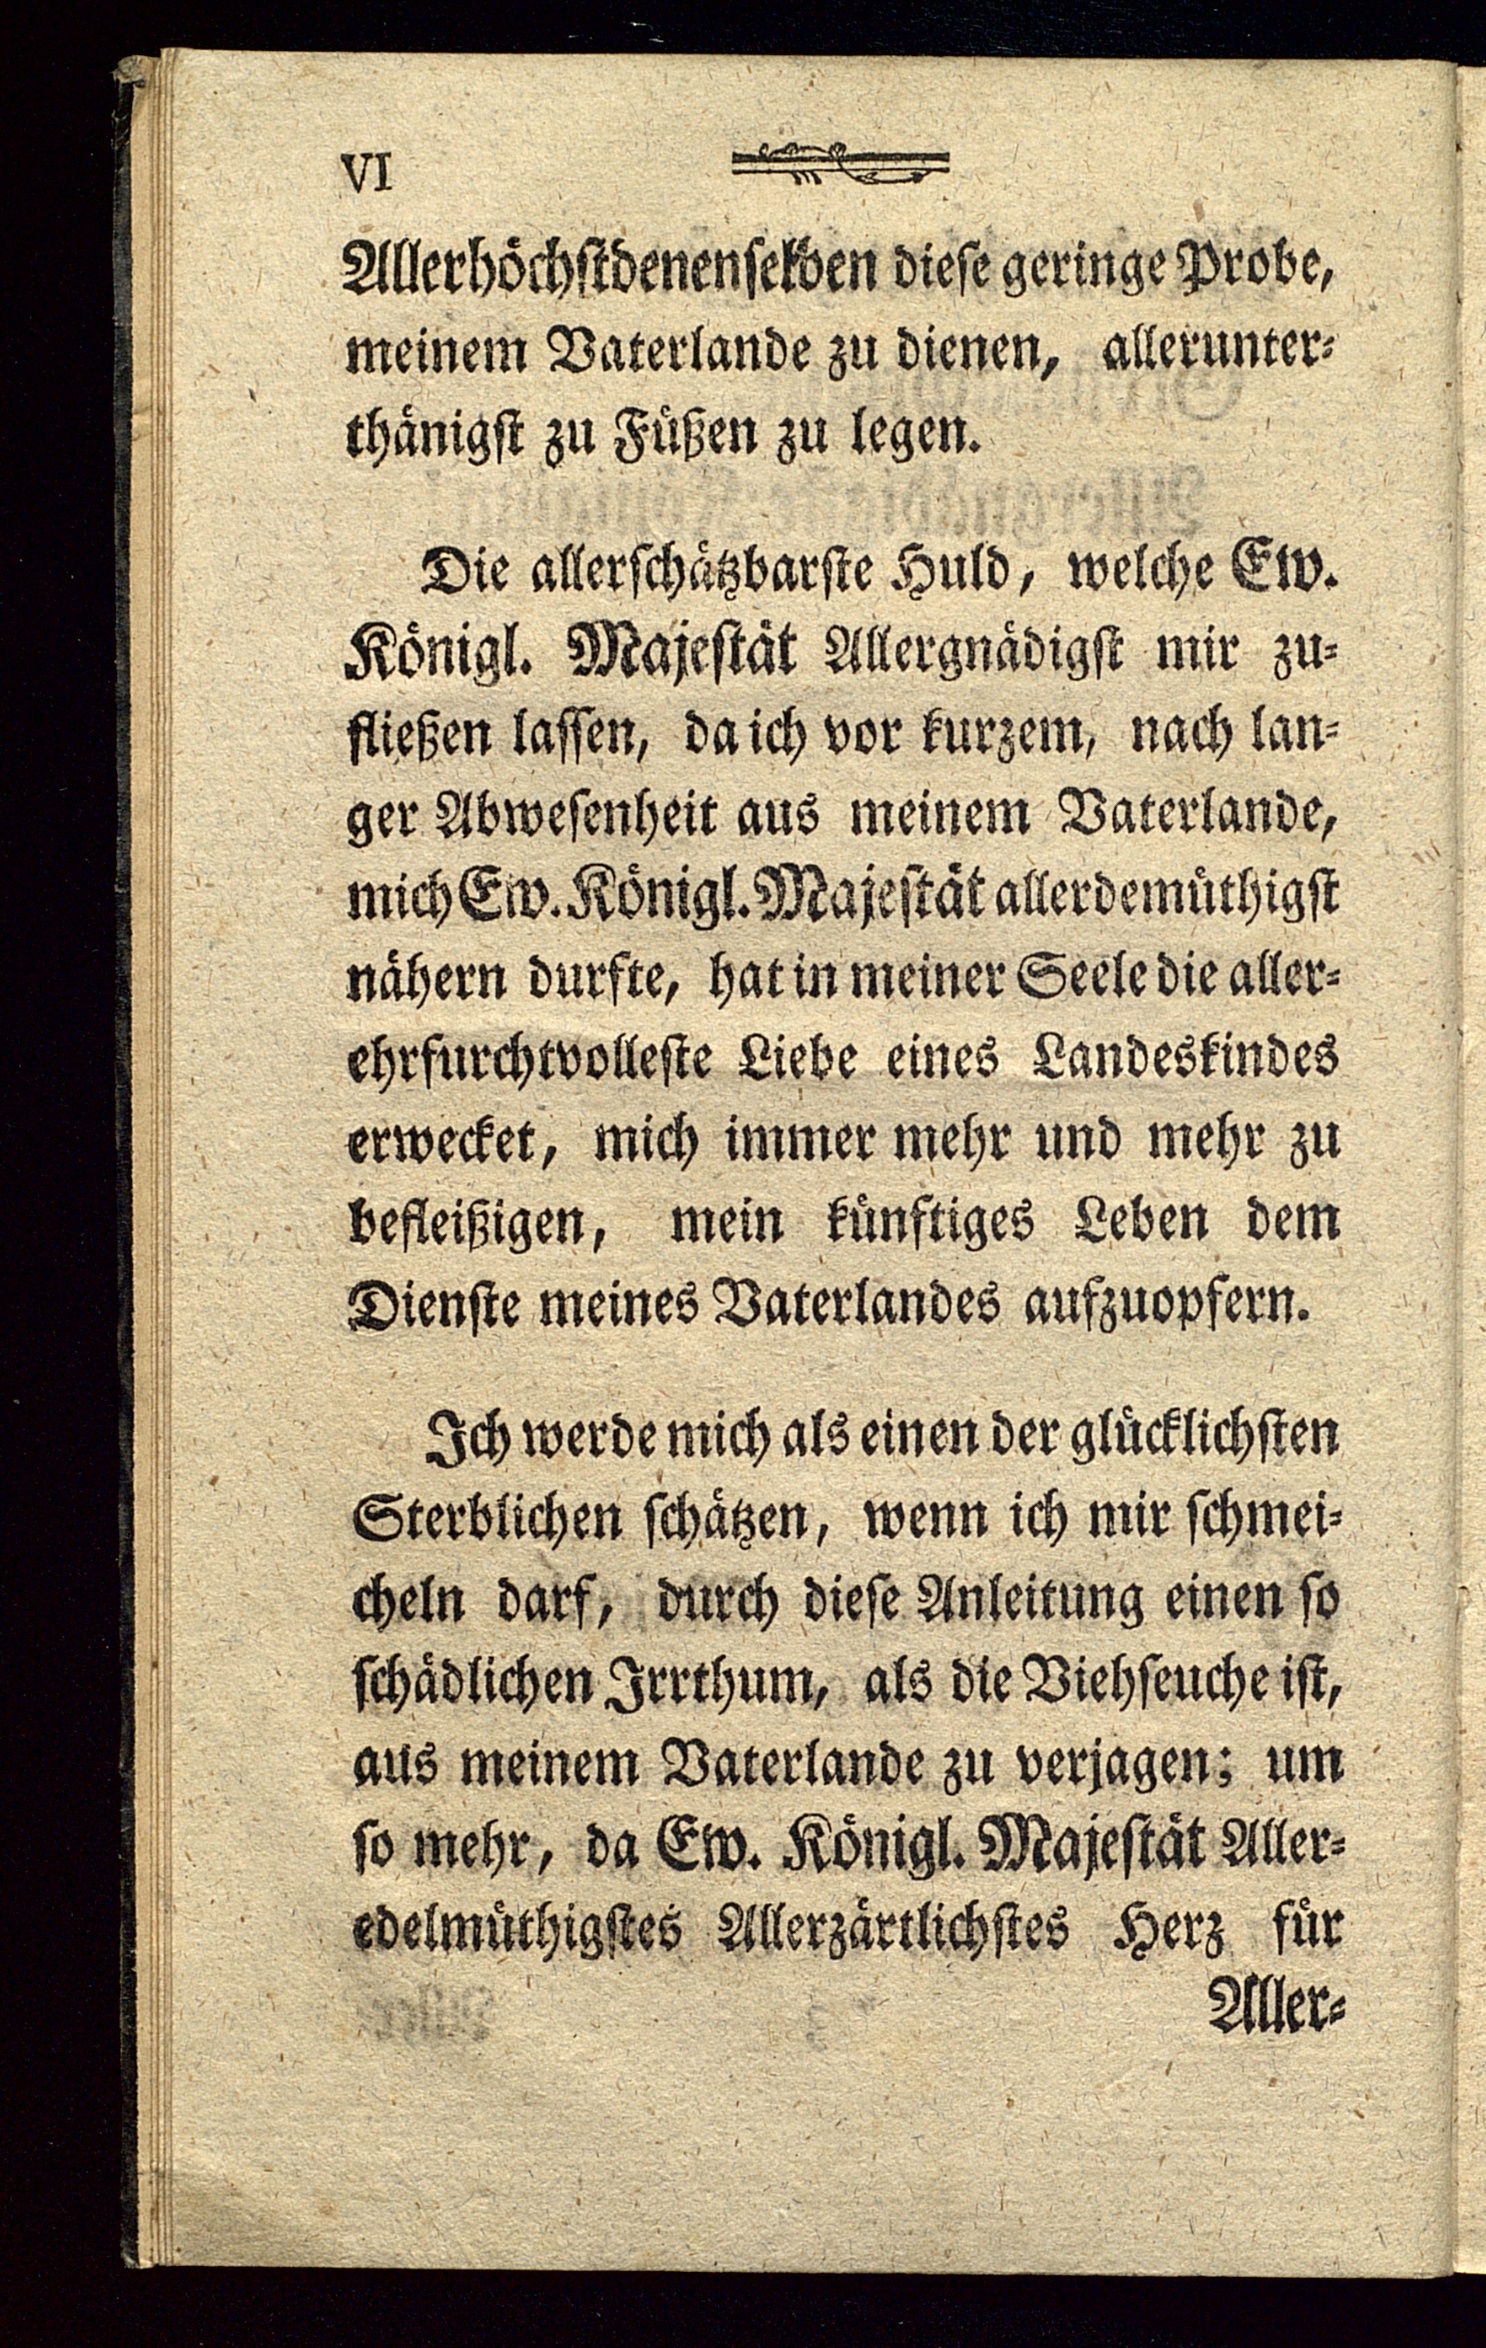 VI
Allerhöchstdenenselben diese geringe Probe,
meinem Vaterlande zu dienen, allerunter-
thänigst zu Füßen zu legen.
Die allerschätzbarste Huld, welche Ew.
Königl. Majestät Allergnädigst mir zu-
fließen lassen, da ich vor kurzem, nach lan-
ger Abwesenheit aus meinem Vaterlande,
mich Ew. Königl. Majestät allerdemüthigst
nähern durfte, hat in meiner Seele die aller-
ehrfurchtvolleste Liebe eines Landeskindes
erwecket, mich immer mehr und mehr zu
befleißigen, mein künftiges Leben dem
Dienste meines Vaterlandes aufzuopfern.
Ich werde mich als einen der glücklichsten
Sterblichen schätzen, wenn ich mir schmei-
cheln darf, durch diese Anleitung einen so
schädlichen Irrthum, als die Viehseuche ist,
aus meinem Vaterlande zu verjagen; um
so mehr, da Ew. Königl. Majestät Aller-
edelmüthigstes Allerzärtlichstes Herz für
Aller-